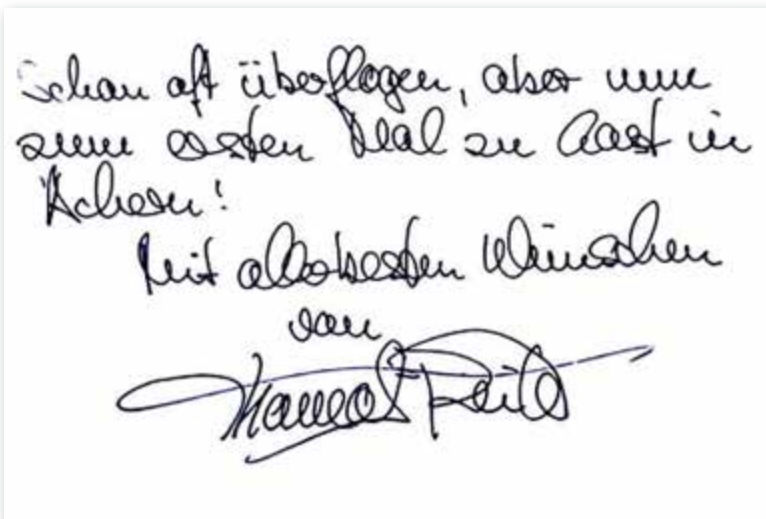 Schon oft überflogen, aber nun
zum ersten Mal zu Gast in
Achern!
Mit allerbesten Wünschen
von
Thomas Reiter